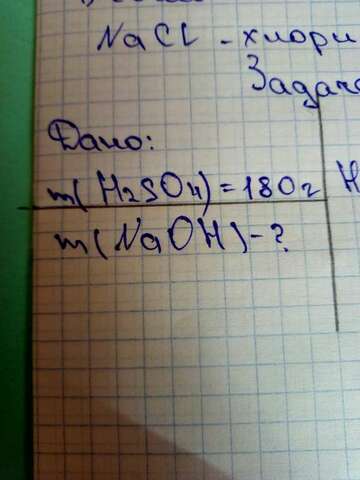 NaCl - хлори
Задача
Дано:
m(H2SO4)=180г
H
m(NaOH)-?